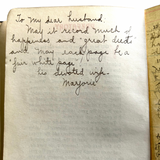 To My dear husband
May it record much of
happiness and great deeds
and may each page be a
"fair white page"!
his devoted wife
Marjorie